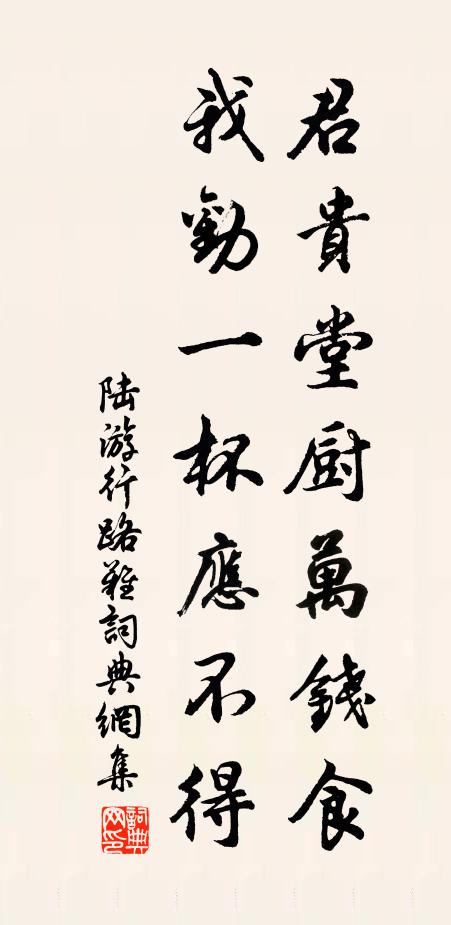 君貴堂厨萬錢食
我勸一杯應不得
陆游行路難詞典網集
詞典网印